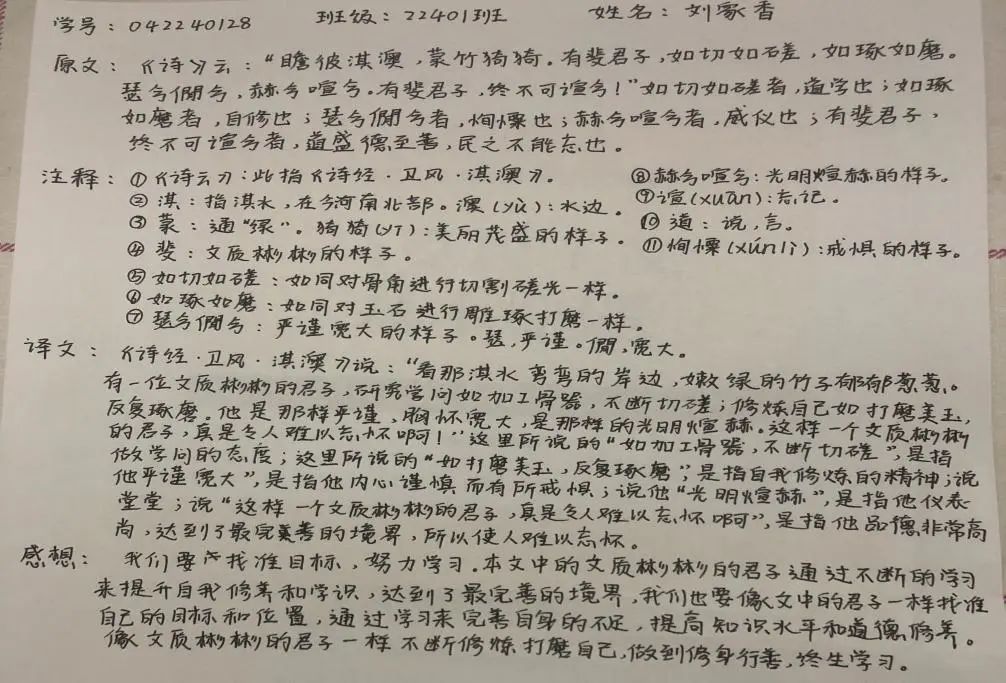 学号：042240128 班级：22401班 姓名：刘家香
原文：《诗》云："瞻彼淇澳，菉竹猗猗。有斐君子，如切如磋，如琢如磨。
瑟兮僩兮，赫兮喧兮。有斐君子，终不可諠兮！"如切如磋者，道学也；如琢
如磨者，自修也；瑟兮僩兮者，恂慄也；赫兮喧兮者，威仪也；有斐君子，
终不可諠兮者，道盛德至善，民之不能忘也。
注释：①《诗云》：此指《诗经·卫风·淇澳》。
②淇：指淇水，在今河南北部。澳(yù)：水边。
③菉：通"绿"。猗猗(yī)：美丽茂盛的样子。
④斐：文质彬彬的样子。
⑤如切如磋：如同对骨角进行切割磋光一样。
⑥如琢如磨：如同对玉石进行雕琢打磨一样。
⑦瑟兮僩兮：严谨宽大的样子。瑟，严谨。僩，宽大。
⑧赫兮喧兮：光明煊赫的样子。
⑨諠(xuān)：忘记。
⑩道：说，言。
⑪恂慄(xúnlì)：戒惧的样子。
译文：《诗经·卫风·淇澳》说："看那淇水弯弯的岸边，嫩绿的竹子郁郁葱葱。
有一位文质彬彬的君子，研究学问如加工骨器，不断切磋；修炼自己如打磨美玉，
反复琢磨。他是那样严谨，胸怀宽大，是那样的光明煊赫。这样一个文质彬彬
的君子，真是令人难以忘怀啊！"这里所说的"如加工骨器，不断切磋"，是指
做学问的态度；这里所说的"如打磨美玉，反复琢磨"，是指自我修炼的精神；说
他严谨宽大"，是指他内心谨慎而有所戒惧；说他"光明煊赫"，是指他仪表
堂堂；说"这样一个文质彬彬的君子，真是令人难以忘怀啊"，是指他品德非常高
尚，达到了最完美善的境界，所以使人难以忘怀。
感想：我们要找准目标，努力学习。本文中的文质彬彬的君子通过不断的学习
来提升自我修养和学识，达到了最完善的境界，我们也要像文中的君子一样找准
自己的目标和位置，通过学习来完善自身的不足，提高知识水平和道德修养。
像文质彬彬的君子一样不断修炼打磨自己，做到修身行善，终生学习。